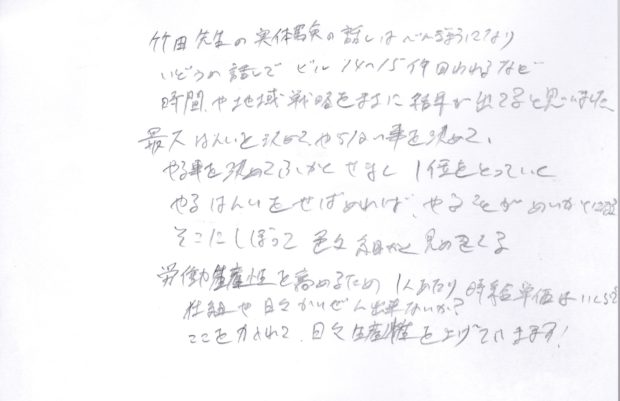 竹田先生の実体験の話しはべんきょうになり
いどうの話しで ビル14〜15件回われるなど
時間や地域戦略をまさに結果が出てると思いました
最大はんいを決めて、やらない事を決めて、
やる事を決めてふかくせまく1位をとっていく
やるはんいをせばめれば、やることがめいかくになる
そこにしぼって色々見めてくる
労働生産性を高めるため 1人あたり時給単価はいくら?
仕組や日々かいぜん出来ないか?
ここを入れて、日々生産性を上げていきます!